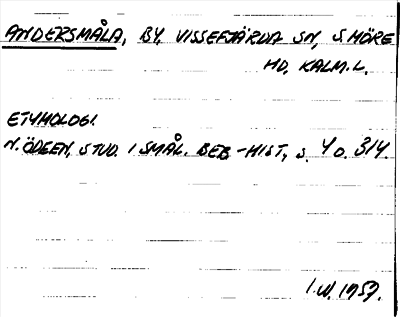 ANDERSMÅLA, BY, VISSEFJÄRDA SN, S. MÖRE
HD, KALM. L.
ETYMOLOGI.
N. ÖDEEN, STUD. I SMÅL. BEB-HIST, s. 4 o. 314.
I.W. 1957.